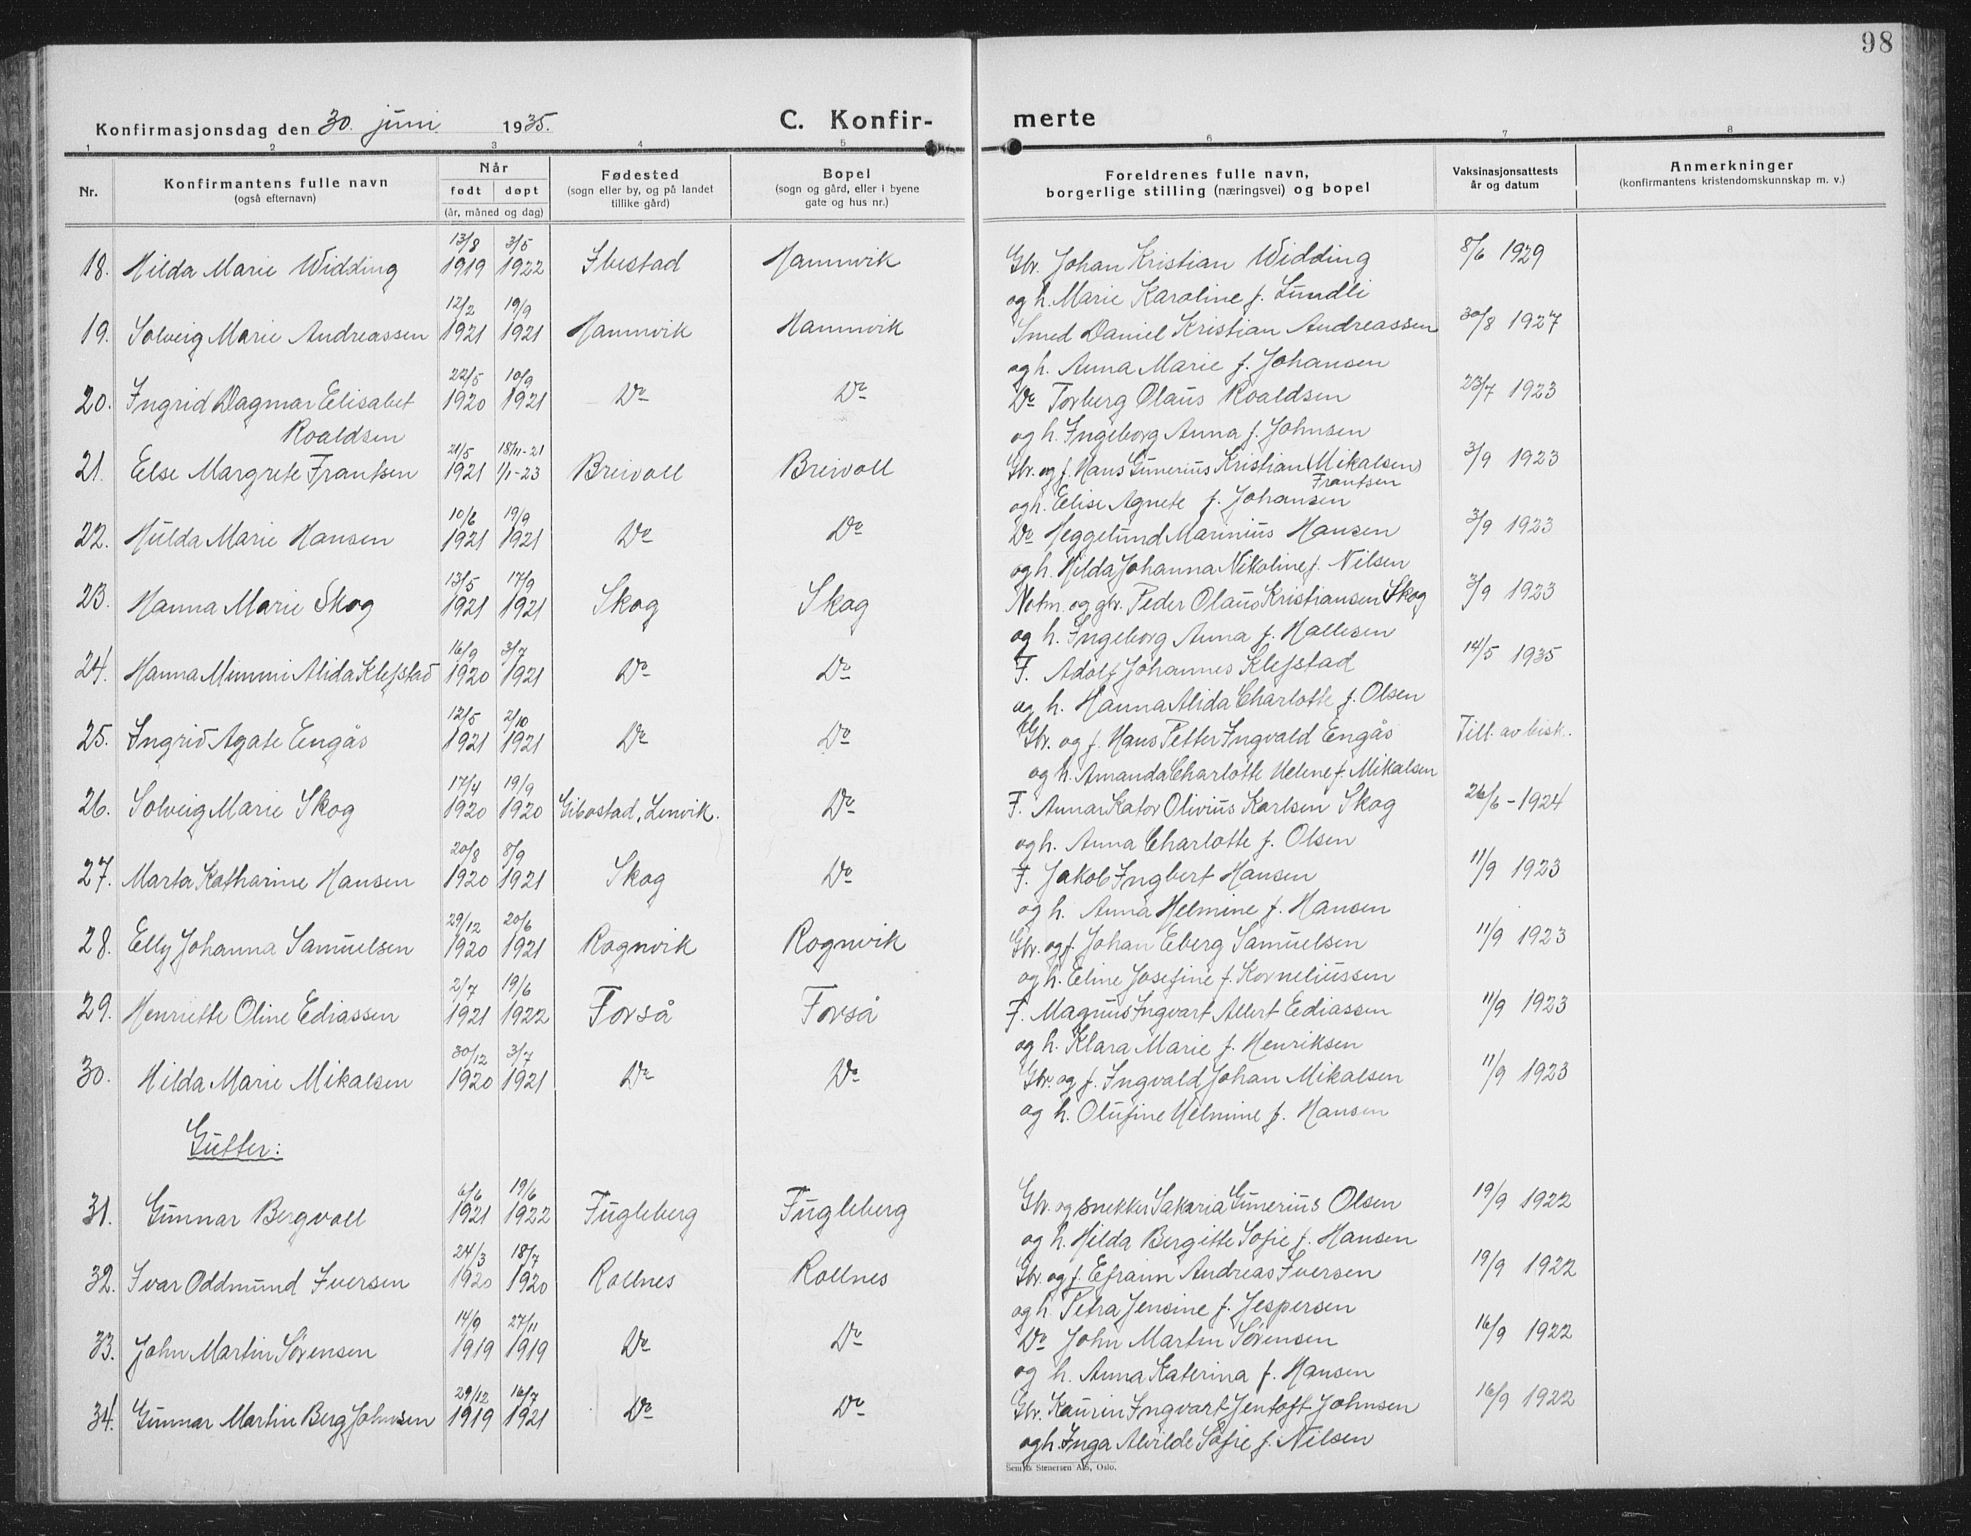 98
Konfirmasjonsdag den 30. juni 1935.
C. Konfirmerte
1 2 3 4 5 6 7 8
Nr.
Konfirmantens fulle navn
(også efternavn)
Når
født døpt
(år, måned og dag)
Fødested
(sogn eller by, og på landet
tillike gård)
Bopel
(sogn og gård, eller i byene
gate og hus nr.)
Foreldrenes fulle navn,
borgerlige stilling (næringsvei) og bopel
Vaksinasjonsattests
år og datum
Anmerkninger
(konfirmantens kristendomskunnskap m. v.)
13/8 3/5
18. Hilda Marie Widding 1919 1922 Ibestad Hamnvik Gbr. Johan Kristian Widding 8/6 1929
og h. Marie Karoline f. Lundli
12/2 19/9
19. Solveig Marie Andreassen 1921 1921 Hamnvik Hamnvik Smed Daniel Kristian Andreassen 30/8 1927
og h. Anna Marie f. Johansen
22/5 10/9
20. Ingrid Dagmar Elisabet 1920 1921 Do Do Do Torberg Olaus Roaldsen 23/7 1923
Roaldsen og h. Ingeborg Anna f. Johnsen
21/5 18/11-21
21. Else Margrete Frantsen 1921 1/1-23 Breivoll Breivoll Gbr. og f. Hans Gunerius Kristian (Mikalsen) 3/9 1923
Frantsen
og h. Elise Agnete f. Johansen
10/6 19/9
22. Hulda Marie Hansen 1921 1921 Do Do Do Heggelund Marinius Hansen 3/9 1923
og h. Hilda Johanna Nikoline f. Nilsen
13/5 17/9
23. Hanna Marie Skog 1921 1921 Skog Skog Notm. og gbr. Peder Olaus Kristiansen Skog 3/9 1923
og h. Ingeborg Anna f. Hallesen
16/9 3/7
24. Hanna Mimmi Alida Klefstad 1920 1921 Do Do F. Adolf Johannes Klefstad 14/5 1935
og h. Hanna Alida Charlotte f. Olsen
12/5 2/10
25. Ingrid Agate Engås 1921 1921 Do Do Gbr. og f. Hans Petter Ingvald Engås Till. av bisk.
og h. Amanda Charlotte Helene f. Mikalsen
17/4 19/9
26. Solveig Marie Skog 1920 1920 Gibostad, Lenvik. Do F. Annar Kator Olivius Karlsen Skog 26/6-1924
og h. Anna Charlotte f. Olsen
20/8 8/9
27. Marta Katharine Hansen 1920 1921 Skog Do F. Jakob Ingbert Hansen 11/9 1923
og h. Anna Helmine f. Hansen
29/12 20/6
28. Elly Johanna Samuelsen 1920 1921 Rognvik Rognvik Gbr. og f. Johan Eberg Samuelsen 11/9 1923
og h. Eline Josefine f. Korneliussen
2/7 19/6
29. Henriette Oline Ediassen 1921 1922 Forså Forså F. Magnus Ingvart Albert Ediassen 11/9 1923
og h. Klara Marie f. Henriksen
30/12 3/7
30. Hilda Marie Mikalsen 1920 1921 Do Do Gbr. og f. Ingvald Johan Mikalsen 11/9 1923
og h. Olufine Helmine f. Hansen
Gutter:
6/6 19/6
31. Gunnar Bergvoll 1921 1922 Fugleberg Fugleberg Gbr. og snekker Sakaria Gunerius Olsen 19/9 1922
og h. Hilda Bergitte Sofie f. Hansen
24/3 18/7
32. Ivar Oddmund Iversen 1920 1920 Rollnes Rollnes Gbr. og f. Efraim Andreas Iversen 19/9 1922
og h. Petra Jensine f. Jespersen
14/9 27/11
33. John Martin Sørensen 1919 1919 Do Do Do John Martin Sørensen 16/9 1922
og h. Anna Katerina f. Hansen
29/12 16/7
34. Gunnar Martin Berg Johnsen 1919 1921 Do Do Gbr. Kaurin Ingvart Jentoft Johnsen 16/9 1922
og h. Inga Alvilde Sofie f. Nilsen
Sem & Stenersen A/S, Oslo.